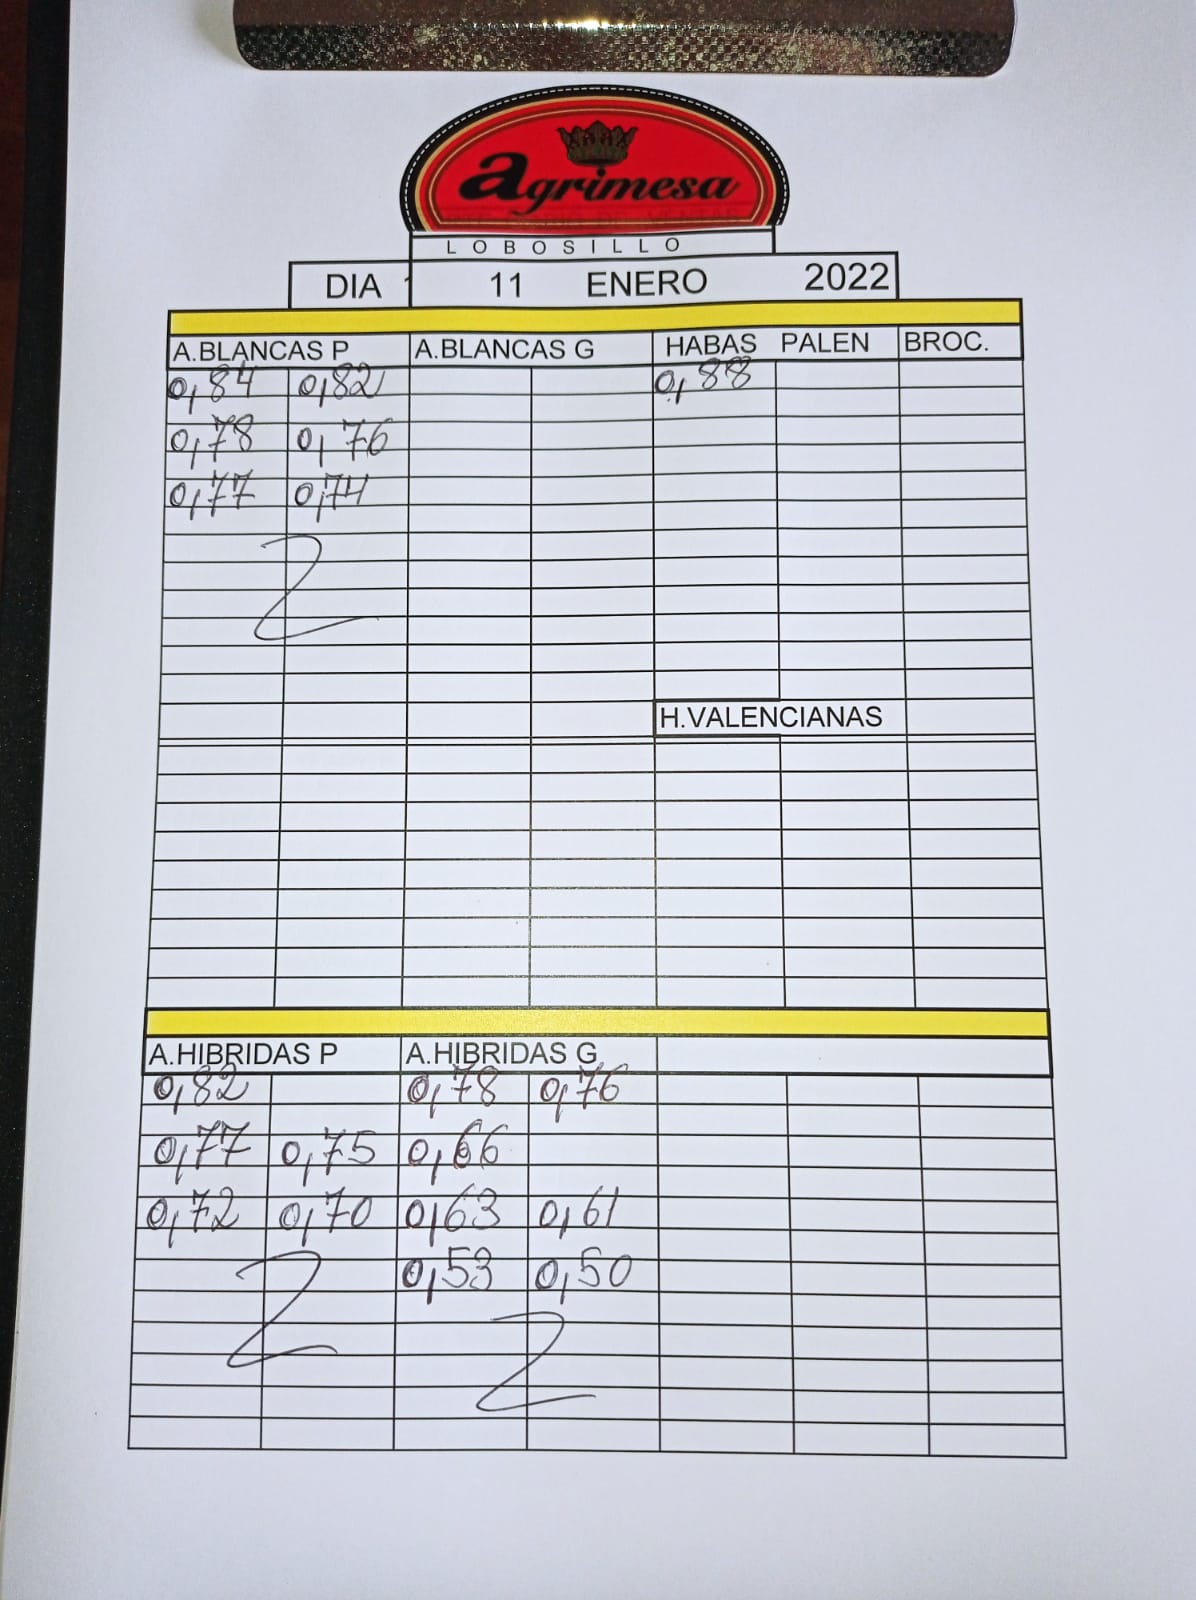 agrimesa
LOBOSILLO
DIA 11 ENERO 2022
A.BLANCAS P A.BLANCAS G HABAS PALEN BROC.
0,84 0,82 0,88
0,78 0,76
0,77 0,74
H.VALENCIANAS
A.HIBRIDAS P A.HIBRIDAS G
0,82 0,78 0,76
0,77 0,75 0,66
0,72 0,70 0,63 0,61
0,53 0,50